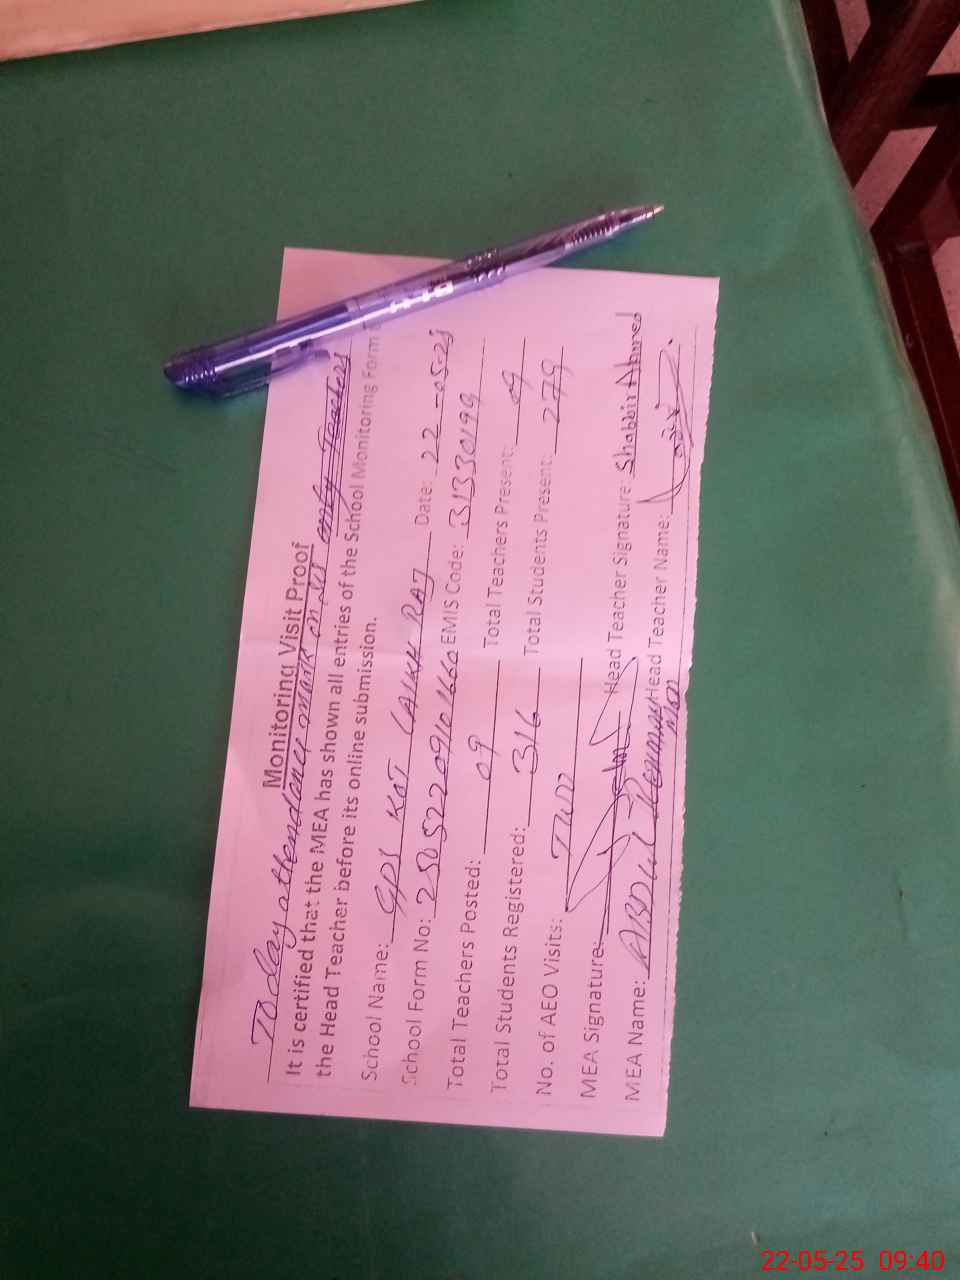 Monitoring Visit Proof
Today attendance mark on SIS only Teachers
It is certified that the MEA has shown all entries of the School Monitoring Form
the Head Teacher before its online submission.
School Name: GPS KOT LAIKH RAJ Date: 22-05-25
School Form No: EMIS Code: 31330199
Total Teachers Posted: 09 Total Teachers Present: 09
Total Students Registered: 316 Total Students Present: 279
No. of AEO Visits: TWO
MEA Signature: Head Teacher Signature: Shabbir Ahmed
MEA Name: ABDUL Head Teacher Name:
22-05-25 09:40